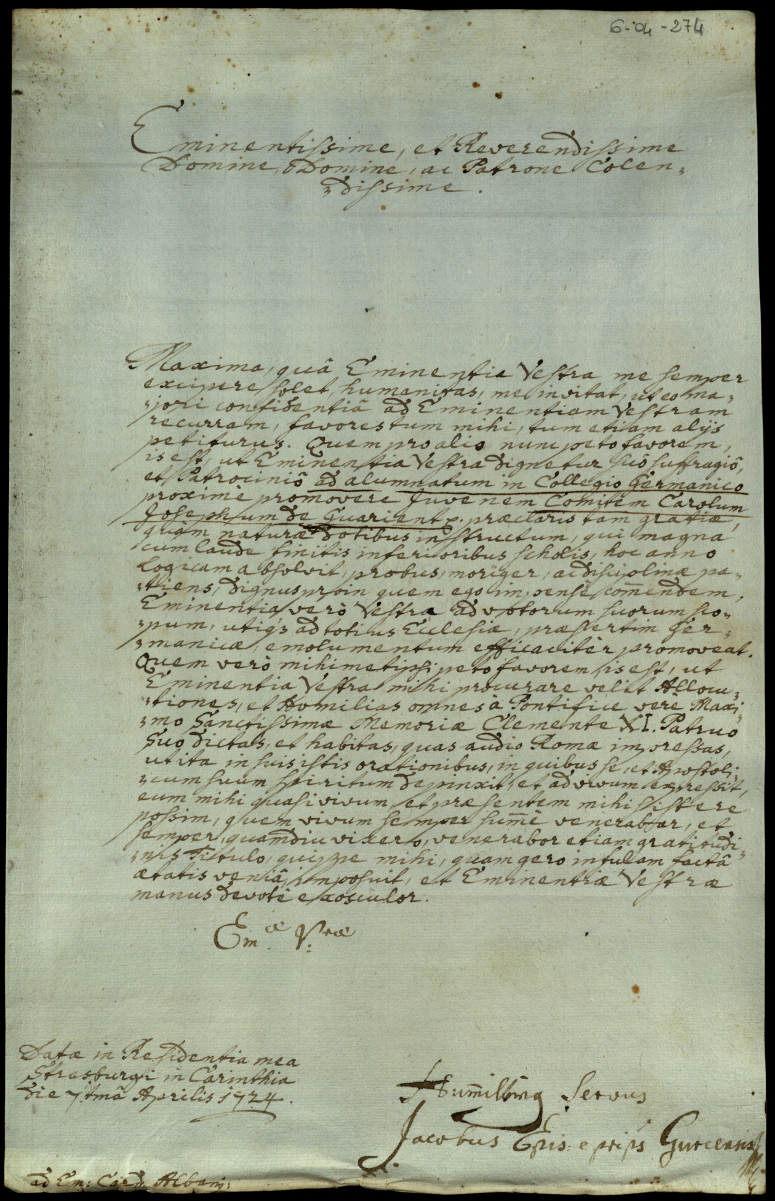 6-04-274
Eminentissime, et Reverendissime
Domine, Domine, ac Patrone Colen=
=dissime.
Maxima, quâ Eminentia Vestra me semper
excipere solet, humanitas, me invitat, ut eo ma=
=jori confidentiâ ad Eminentiam Vestram
recurram, favores tum mihi, tum etiam alijs
petiturus. Quem pro alio nunc peto favorem,
is est, ut Eminentia Vestra dignetur suô suffragiô,
et Patrociniô ad alumnatum in Collegio Germanico
proxime promovere Juvenem Comitem Carolum
Josephum de Guarient, præclaris tam gratiæ,
quàm naturæ dotibus instructum, qui magna
cum laude finitis inferioribus scholis, hoc anno
Logicam absolvit, probus, moriger, ac disciplinæ pa=
=tiens, dignus proin quem ego im̄pense com̄endem,
Eminentia verò Vestra ad votorum suorum sco=
=pum, utiq3 ad totius Ecclesiæ, præsertim Ger=
=manicæ, emolumentum efficacitèr promoveat.
Quem verò mihimetipsi peto favorem, is est, ut
Eminentia Vestra mihi procurare velit Allocu=
=tiones, et Homilias omnes à Pontifice verè Maxi=
=mo Sanctissimæ Memoriæ Clemente XI. Patruo
Suo dictas, et habitas, quas audio Romæ impressas,
ut ita in suis istis orationibus, in quibus se, et Apostoli=
=cum suum spiritum depinxit, et ad vivum expressit,
eum mihi quasi vivum, et præsentem mihi sistere
possim, quem vivum semper sum̄e venerabar, et
semper, quamdiu vixero, venerabor etiam gratitudi=
=nis Titulo, quippe mihi, quam gero infulam factâ
ætatis veniâ, imposuit, et Eminentiæ Vestræ
manus devotè exosculor.
Em:æ V:ræ
Datæ in Residentia mea
Strasburgi in Carinthia
die 7tmâ Aprilis 1724.
Humillimg Servus
Jacobus Epis: e prīps Gurcensis
ad Em: Card: Albani: